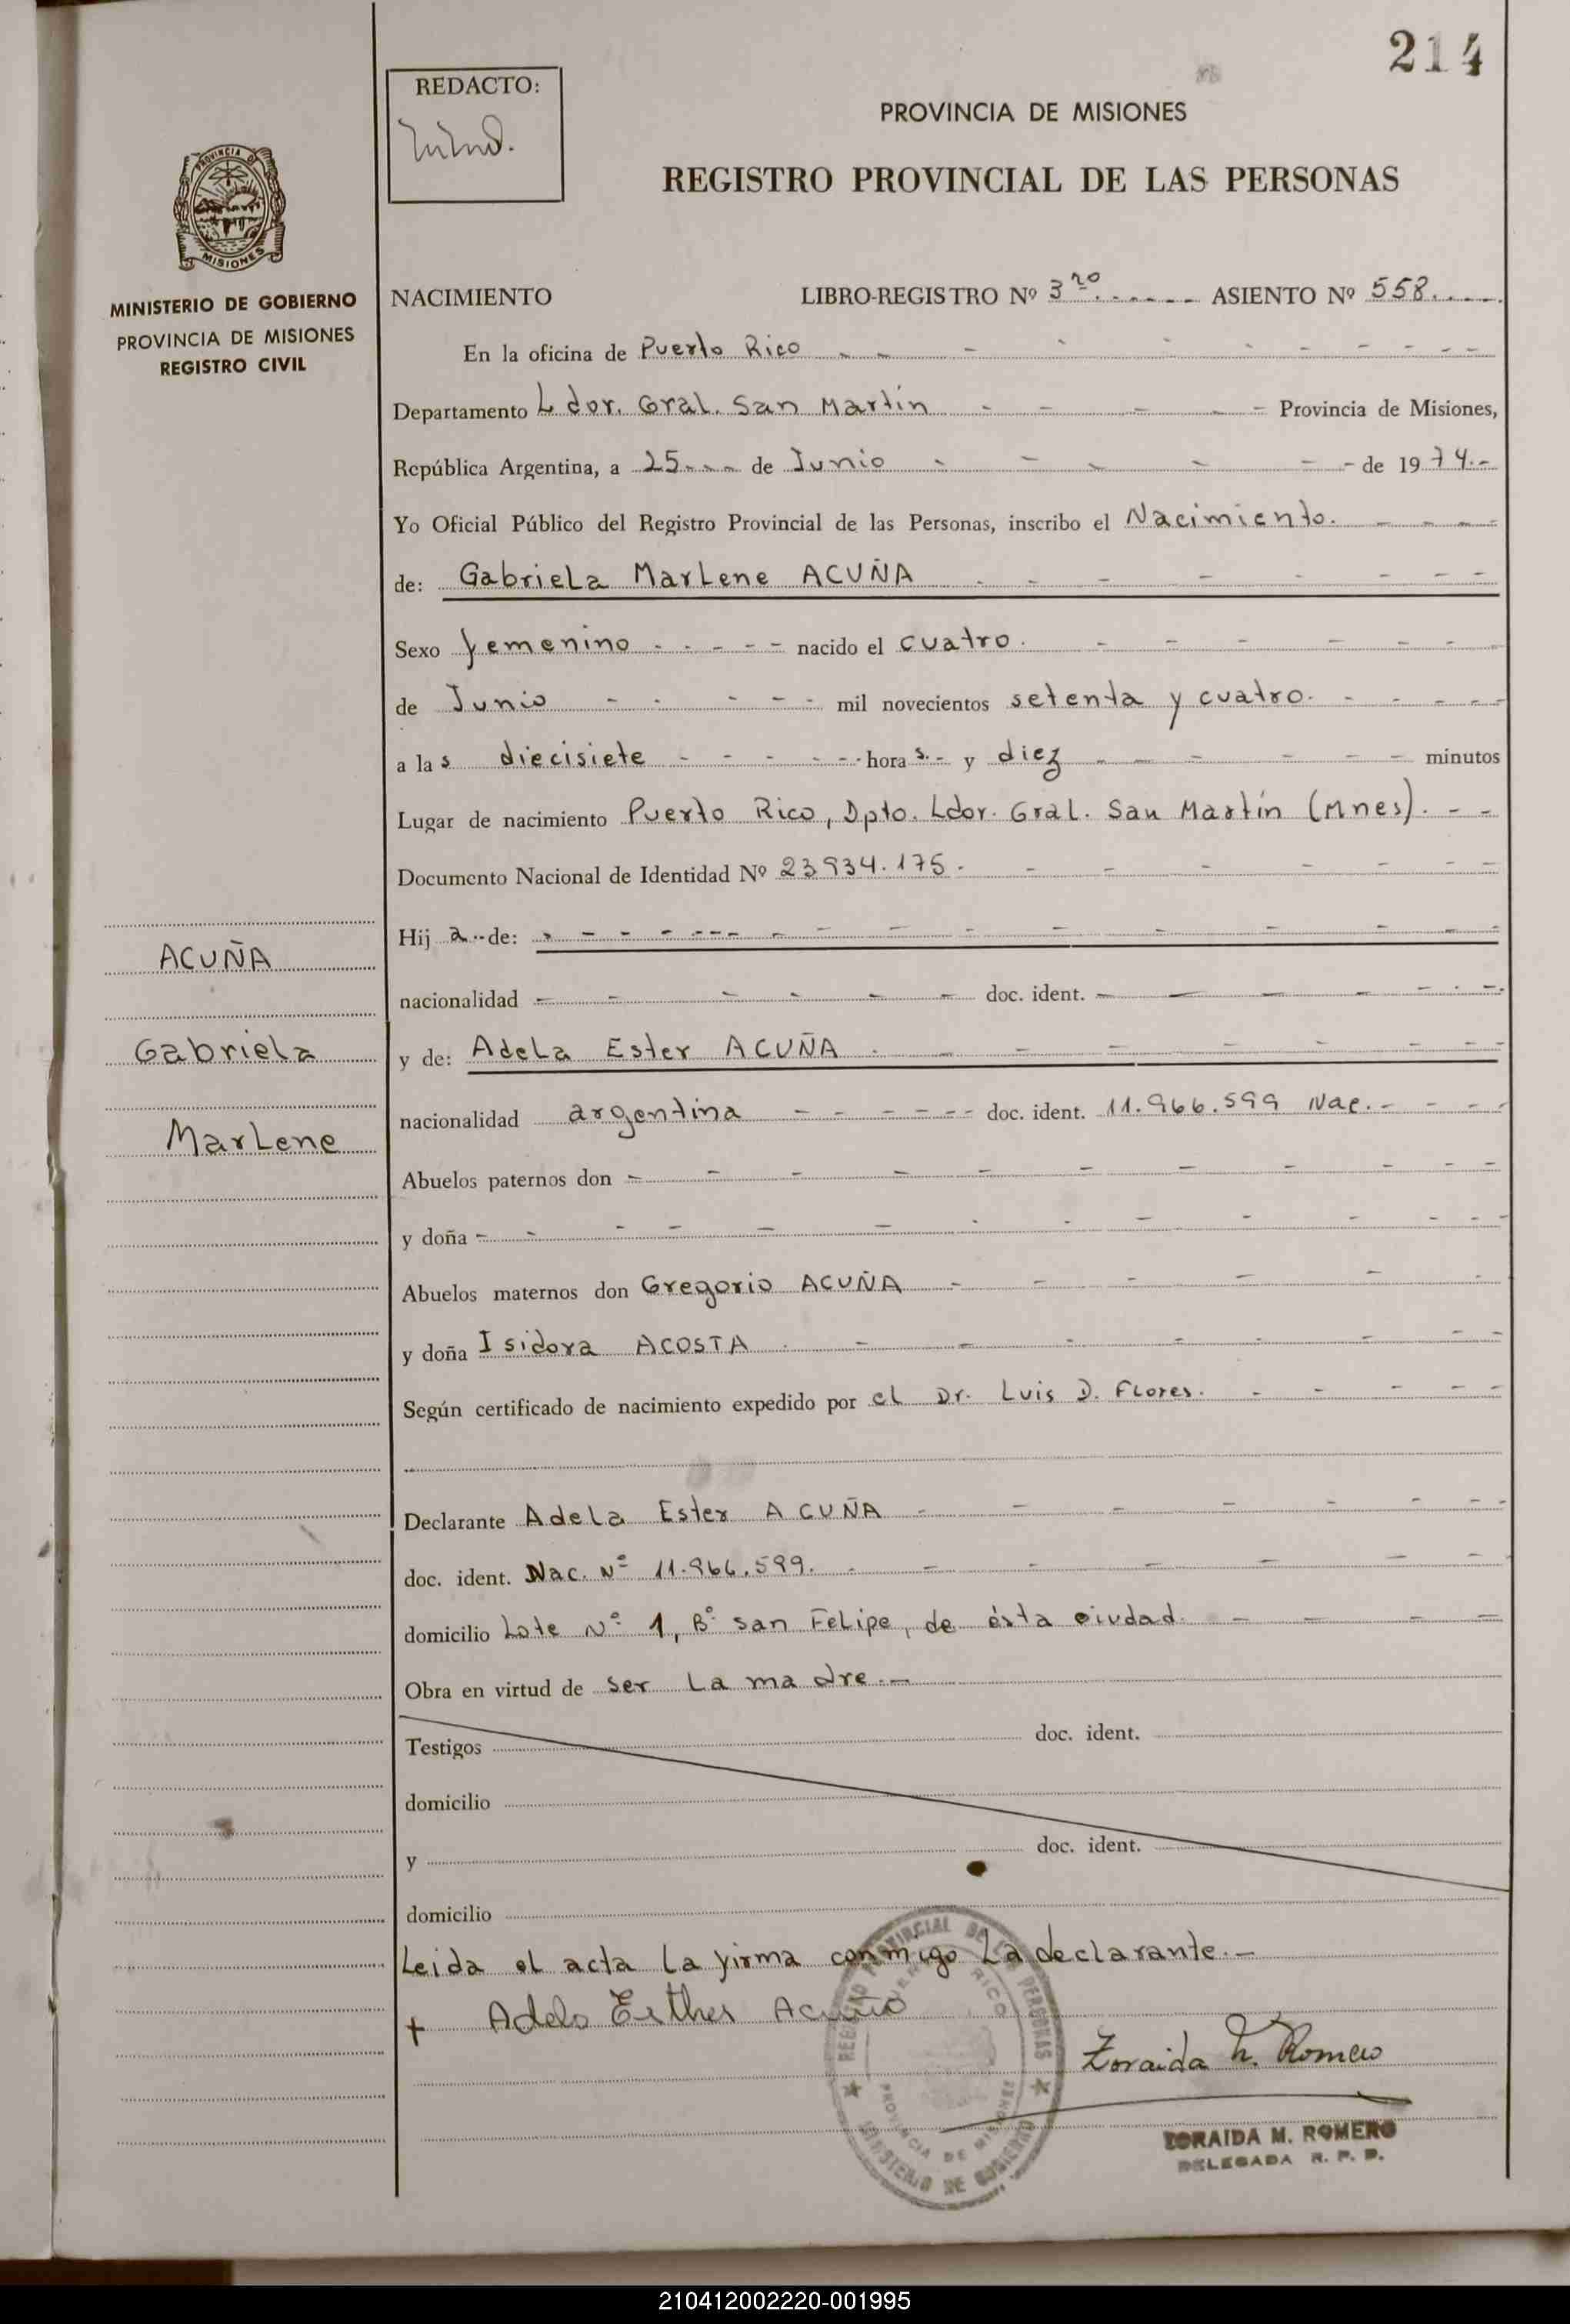 214
REDACTO:
PROVINCIA DE MISIONES
REGISTRO PROVINCIAL DE LAS PERSONAS
PROVINCIA DE
MISIONES
MINISTERIO DE GOBIERNO
PROVINCIA DE MISIONES
REGISTRO CIVIL
NACIMIENTO LIBRO-REGISTRO Nº 3ro. ASIENTO Nº 558.
En la oficina de Puerto Rico
Departamento Ldor. Gral. San Martín Provincia de Misiones,
República Argentina, a 25 de Junio de 1974.-
Yo Oficial Público del Registro Provincial de las Personas, inscribo el Nacimiento.
de: Gabriela Marlene ACUÑA
Sexo femenino nacido el cuatro.
de Junio mil novecientos setenta y cuatro.
a las diecisiete horas.- y diez minutos
Lugar de nacimiento Puerto Rico, Dpto. Ldor. Gral. San Martín (Mnes).
Documento Nacional de Identidad Nº 23934.175.
Hija de:
nacionalidad doc. ident.
y de: Adela Ester ACUÑA
nacionalidad argentina doc. ident. 11.966.599 Nac.-
Abuelos paternos don
y doña
Abuelos maternos don Gregorio ACUÑA
y doña Isidora ACOSTA
Según certificado de nacimiento expedido por el Dr. Luis D. Flores.
Declarante Adela Ester ACUÑA
doc. ident. Nac. Nº 11.966.599.
domicilio Lote Nº 1, Bº San Felipe, de ésta ciudad.
Obra en virtud de ser la madre.-
Testigos doc. ident.
domicilio
y doc. ident.
domicilio
Leida el acta la firma conmigo La declarante.-
+ Adela Esther Acuña
Zoraida M. Romero
ZORAIDA M. ROMERO
DELEGADA R. P. P.
REGISTRO PROVINCIAL DE LAS PERSONAS
MINISTERIO DE GOBIERNO
PROVINCIA DE MISIONES
ACUÑA
Gabriela
Marlene
210412002220-001995